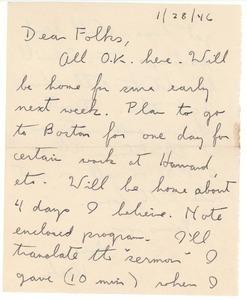 1/28/46
Dear Folks,
All O.K. here. Will
be home for sure early
next week. Plan to go
to Boston for one day for
certain work at Harvard,
etc. Will be home about
4 days I believe. Note
enclosed program. I'll
translate the "sermon" I
gave (10 min) when I